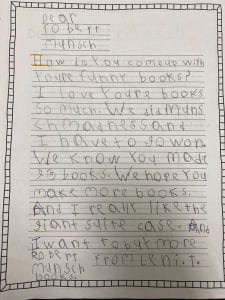 Dear
Robert
Munsch
How do you come up with
youre funny books?
I love youre books
so much. We did Muns
ch madness and
I have to go won.
We know you made
books. We hope you
make more books.
And I really like the
giant suite case. And
I want to buy more
Robert
Munsch from Leni. T.
books.